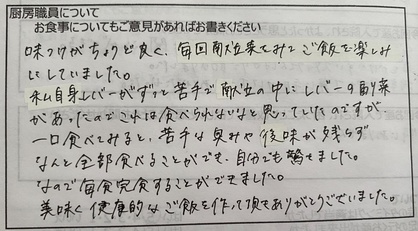 厨房職員について
お食事についてもご意見があればお書きください
味つけがちょうど良く、毎回献立表をみてご飯を楽しみ
にしていました。
私自身レバーがずっと苦手で献立の中にレバーの副菜
があったのでこれは食べられないなと思っていたのですが
一口食べてみると、苦手な臭みや後味が残らず
なんと全部食べることができ、自分でも驚きました。
なので毎食完食することができました。
美味しく健康的なご飯を作って頂きありがとうございました。